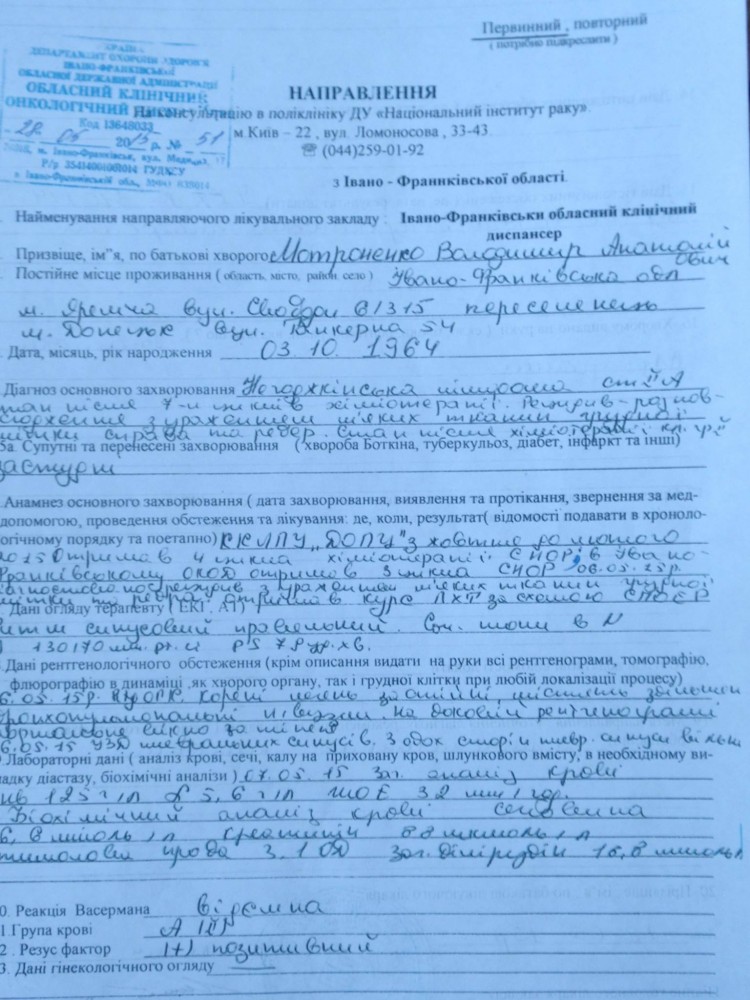 Первинний , повторний
( потрібно підкреслити )
УКРАЇНА
ДЕПАРТАМЕНТ ОХОРОНИ ЗДОРОВ'Я
ІВАНО-ФРАНКІВСЬКОЇ
ОБЛАСНОЇ ДЕРЖАВНОЇ АДМІНІСТРАЦІЇ
ОБЛАСНИЙ КЛІНІЧНИЙ
ОНКОЛОГІЧНИЙ
Код 13648033
20 15 р. № 51
НАПРАВЛЕННЯ
На консультацію в поліклініку ДУ «Національний інститут раку».
м.Київ – 22 , вул. Ломоносова , 33-43.
☏ (044)259-01-92
з Івано - Франниківської області.
Найменування направляючого лікувального закладу : Івано-Франковськи обласний клінічний
диспансер
Призвіще, ім"я, по батькові хворого Мотроненко Володимир Анатолійович
Постійне місце проживання ( область, місто, район село ) Івано-Франківська обл
м. Яремча вул. Свободи 613 переселенець
м. Донецьк вул. 54
. Дата, місяць, рік народження 03. 10. 1964
Діагноз основного захворювання Негоджкінська лімфома ст II А
стан після 7-и циклів хіміотерапії. Рецидив-
з ураженням м'яких тканин грудної
клітки справа та ребер. Стан після хіміотерапії
5а. Супутні та перенесені захворювання ( хвороба Боткіна, туберкульоз, діабет, інфаркт та інші)
.Анамнез основного захворювання ( дата захворювання, виявлення та протікання, звернення за мед-
допомогою, проведення обстеження та лікування: де, коли, результат( відомості подавати в хроноло-
огічному порядку та поетапно) ККЛПУ „ДОПЦ" з жовтня до лютого
2015 отримав 4 цикла хіміотерапії СНОР, в Івано-
Франківському ОКОД отримав 3 цикла СНОР 06.05.15р.
з ураженням м'яких тканин грудної
клітки та ребра, отримав курс ПХТ за схемою
. Дані огляду терапевту ( ЕКГ , АТ )
ритм синусовий правильний. тони в N
130/70 мм. рт. ст PS 78 уд. хв.
. Дані рентгенологічного обстеження (крім описання видати на руки всі рентгенограми, томографію,
флюорографію в динаміці ,як хворого органу, так і грудної клітки при любій локалізації процесу)
6.05.15р. корені легень містять збільшені
бронхопульмональні л.вузли. На боковій рентгенограмі
6.05.15 УЗД плевральних синусів. З обох сторін плевр. синуси вільні
Лабораторні дані ( аналіз крові, сечі, калу на приховану кров, шлункового вмісту, в необхідному ви-
падку діастазу, біохімічні аналізи ) 07.05.15 заг. аналіз крові
125 г/л 5,6 г/л ШОЕ 32 мм / год.
Біохімічний аналіз крові сечовина
6,8 ммоль/л креатинін 88 мкмоль/л
тимолова проба 3,1 ОД заг. білірубін 16,8 мкмоль/л
0. Реакція Васермана від'ємна
1.Група крові А (II)
2 . Резус фактор (+) позитивний
3. Дані гінекологічного огляду